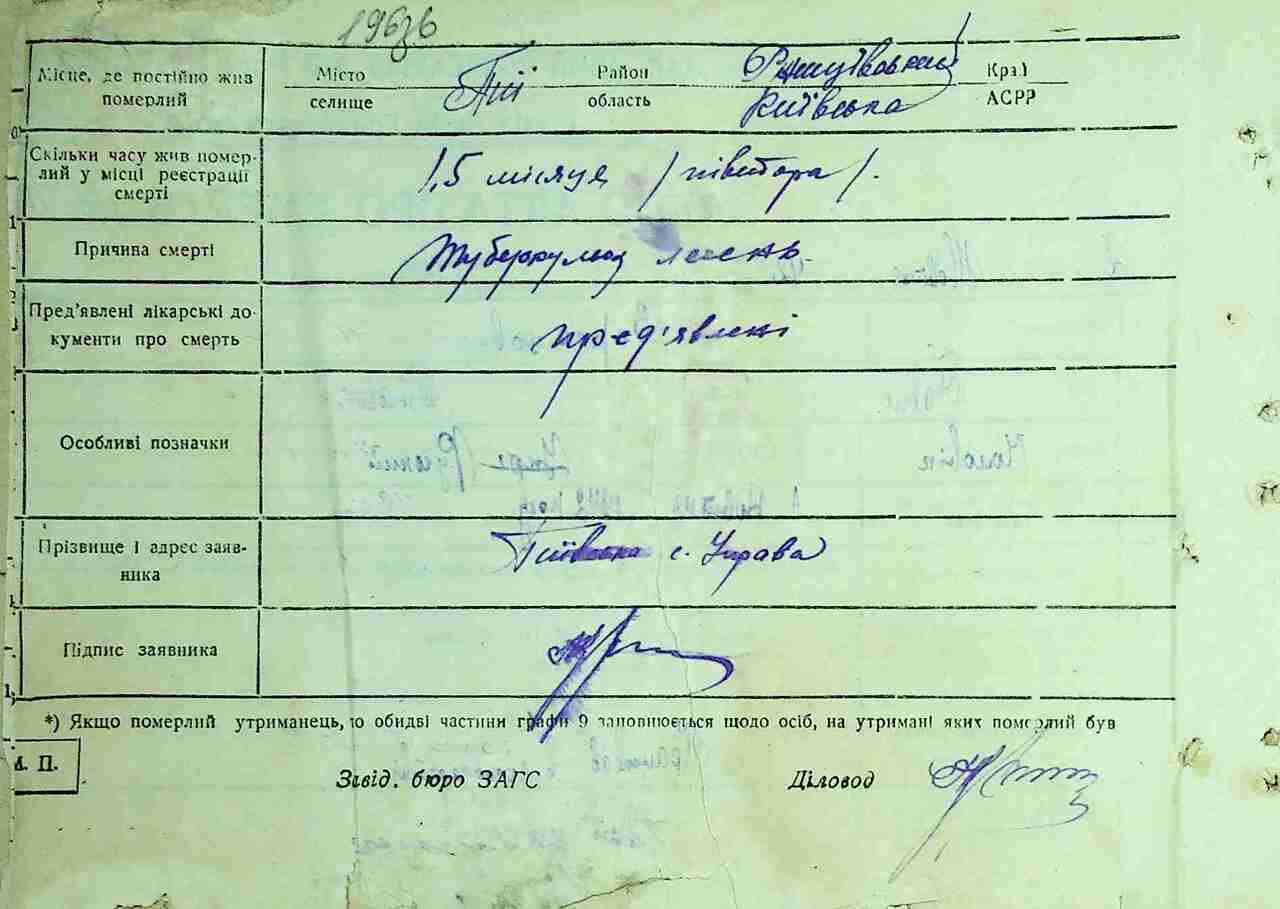 1963б
Місце, де постійно жив померлий
Місто селище
Пії
Район область
Ржищівський
Київська
Край АСРР
Скільки часу жив помер-
лий у місці реєстрації
смерті
1,5 місяця /півтора/.
Причина смерті
Туберкульоз легень
Пред'явлені лікарські до-
кументи про смерть
пред'явлені
Особливі позначки
Прізвище і адрес заяв-
ника
Піївська с. Управа
Підпис заявника
*) Якщо померлий утриманець, то обидві частини графи 9 заповнюється щодо осіб, на утримані яких померлий був
М. П.
Завід. бюро ЗАГС
Діловод